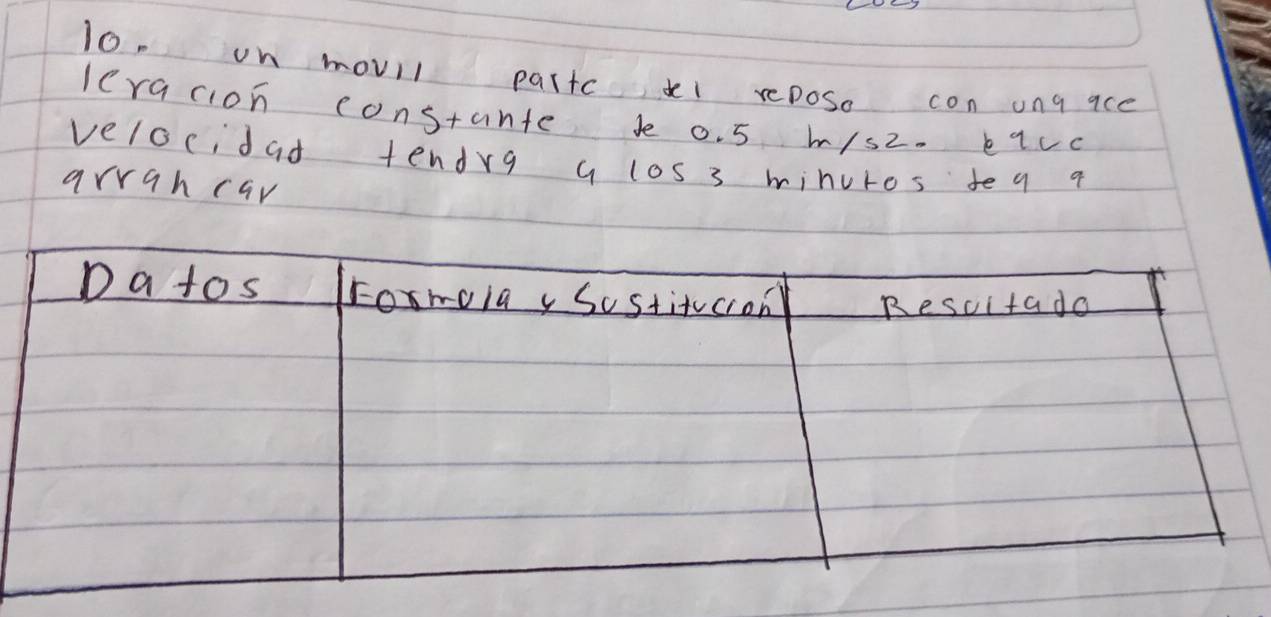 10. un movil parte del reposo con una ace
leracion constante de 0.5 m/s2. que
velocidad tendra a los 3 minutos de a a
arrancar
Datos Formula y Sustitucion Resultado